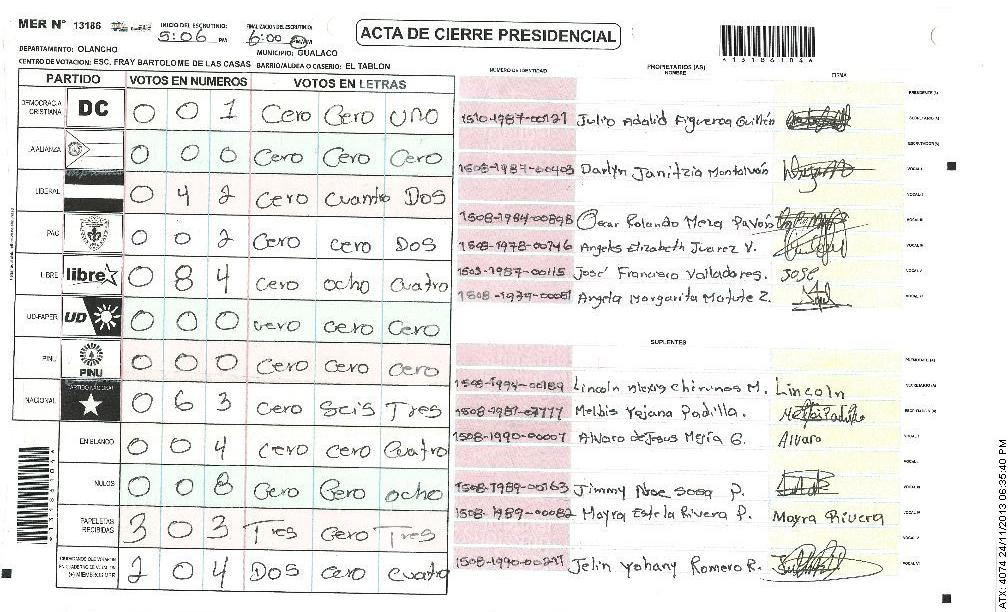 MER N° 13186
INICIO DEL ESCRUTINIO:
5:06 PM
FINALIZACION DEL ESCRUTINIO:
6:00 PM
ACTA DE CIERRE PRESIDENCIAL
DEPARTAMENTO: OLANCHO
MUNICIPIO: GUALACO
CENTRO DE VOTACION: ESC. FRAY BARTOLOME DE LAS CASAS BARRIO/ALDEA O CASERIO: EL TABLON
PARTIDO VOTOS EN NUMEROS VOTOS EN LETRAS
DEMOCRACIA CRISTIANA DC 0 0 1 Cero Cero uno
LA ALIANZA 0 0 0 Cero Cero Cero
LIBERAL 0 4 2 Cero cuantro Dos
PAC 0 0 2 Cero cero Dos
LIBRE libre 0 8 4 cero ocho cuatro
UD-FAPER UD 0 0 0 cero cero cero
PINU PINU 0 0 0 Cero Cero cero
NACIONAL PARTIDO NACIONAL 0 6 3 Cero Seis Tres
EN BLANCO 0 0 4 Cero cero Cuatro
NULOS 0 0 8 Cero Cero ocho
PAPELETAS RECIBIDAS 3 0 3 Tres Cero Tres
CIUDADANOS QUE VOTARON EN CUADERNO DE VOTACION (+) MIEMBROS MER 2 0 4 Dos cero cuatro
NUMERO DE IDENTIDAD PROPIETARIOS (AS) NOMBRE FIRMA
PRESIDENTE (A)
1510-1987-00121 Julio Adalid Figueroa Guillén SECRETARIO (A)
ESCRUTADOR (A)
1508-1987-00403 Darlyn Janitzia Montalván VOCAL I
VOCAL II
1508-1984-00898 Oscar Rolando Meza Pavón VOCAL III
1508-1978-00746 Angeles Elizabeth Juarez V. VOCAL IV
1503-1987-00115 José Francisco Valladares. JOSE VOCAL V
1508-1979-00051 Angela Margarita Matute Z. VOCAL VI
SUPLENTES
PRESIDENTE (A)
1508-1994-00189 Lincoln Alexis Chirunos M. Lincoln SECRETARIO (A)
Melbis Yojana Padilla. Melbis Padilla ESCRUTADOR (A)
1508-1990-00007 Alvaro de Jesus Mejía G. Alvaro VOCAL I
VOCAL II
1508-1989-00163 Jimmy Noe Sosa P. VOCAL III
1508-1989-00082 Mayra Estela Rivera P. Mayra Rivera VOCAL IV
VOCAL V
1508-1990-00297 Jelin Yohany Romero R. VOCAL VI
ATX: 4074 24/11/2013 06:35:40 PM